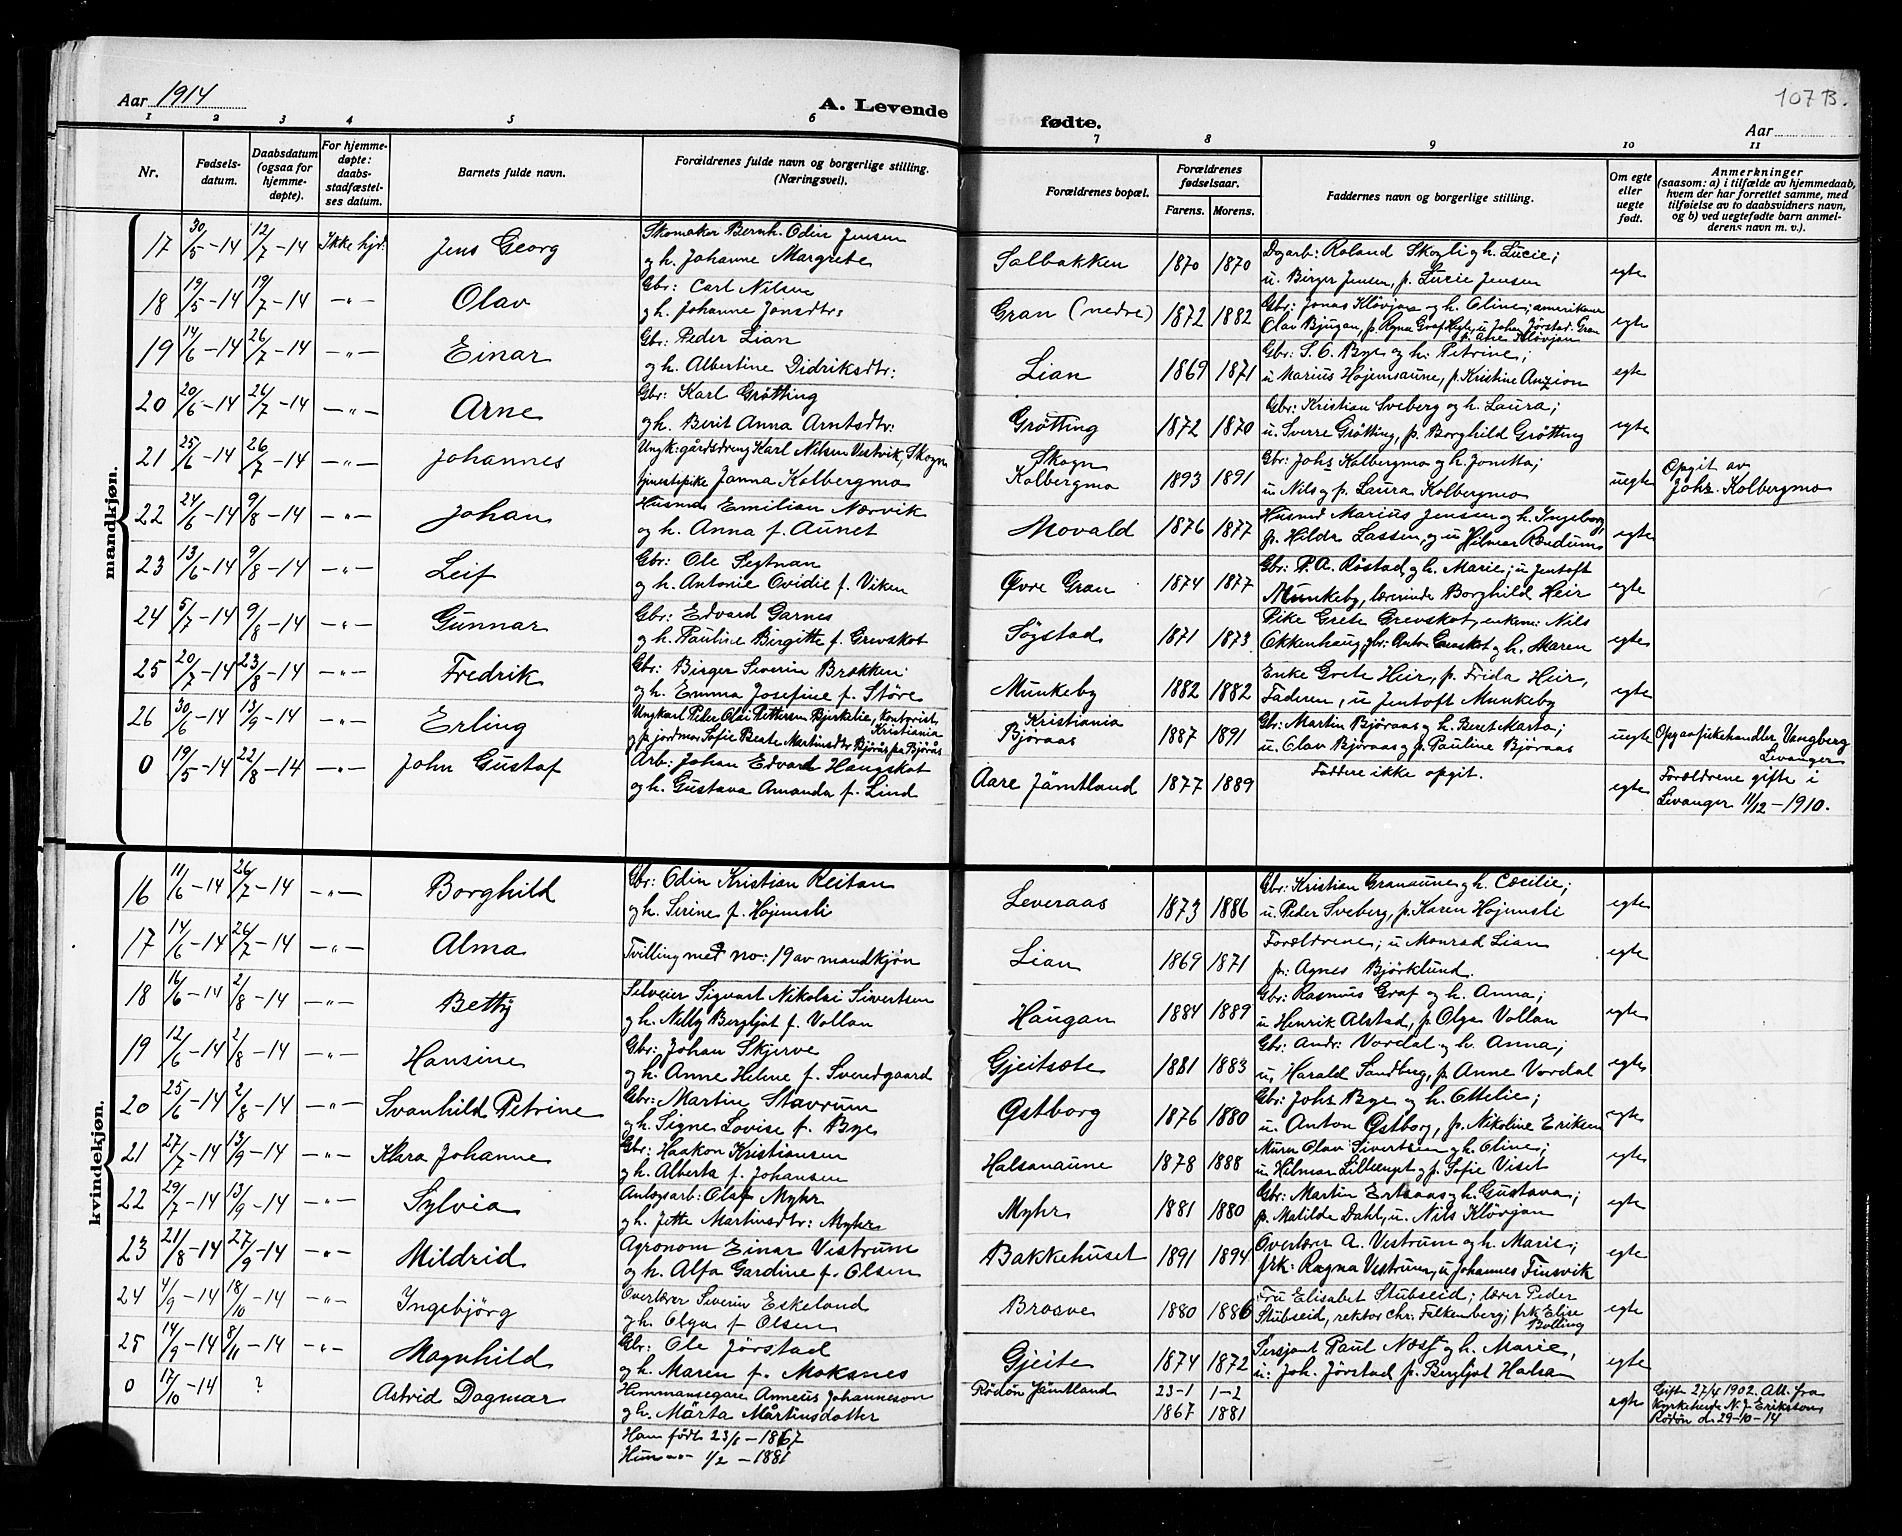 Aar 1914
A. Levende
fødte.
107 B.
Aar
1 2 3 4 5 6 7 8 9 10 11
Nr.
Fødsels-
datum.
Daabsdatum
(ogsaa for
hjemme-
døpte).
For hjemme-
døpte:
daabs-
stadfæstel-
ses datum.
Barnets fulde navn.
Forældrenes fulde navn og borgerlige stilling.
(Næringsvei).
Forældrenes bopæl.
Forældrenes
fødselsaar.
Farens. Morens.
Faddernes navn og borgerlige stilling.
Om egte
eller
uegte
født.
Anmerkninger
(saasom: a) i tilfælde av hjemmedaab,
hvem der har forrettet samme, med
tilføielse av to daabsvidners navn,
og b) ved uegtefødte barn anmel-
derens navn m. v.).
mandkjøn.
17 30/5-14 12/7-14 Ikke hjd. Jens Georg Skomaker Bernh. Odin Jensen
og h. Johanne Margrete Salbakken 1870 1870 Dagarb: Roland Skogli g h. Lucie;
u. Birger Jensen, p. Lucie Jensen egte
18 19/5-14 19/7-14 -"- Olav Gbr: Carl Nilsen
og h. Johanne Jonsdtr: Gran (nedre) 1872 1882 Gbr: Jonas Kløvjan og h. Oline; amerikaner
Olav Bjugan, p. Ragna Graf Hegle, u Johan Jørstad. Gran
p. Kløvjan egte
19 14/6-14 26/7-14 -"- Einar Gbr: Peder Lian
og h. Albertine Didriksdtr: Lian 1869 1871 Gbr: S. C. Bye og h. Petrine;
u Marius Højemsaune, p. Kristine Anzion egte
20 20/6-14 26/7-14 -"- Arne Gbr: Karl Grøtting
og h. Berit Anna Arntsdtr: Grøtting 1872 1870 Gbr: Kristian Sveberg og h. Laura;
u. Sverre Grøtting, p. Borghild Grøtting egte
21 25/6-14 26/7-14 -"- Johannes Ungk: gårdsdreng Karl Nilsen Vestvik, Skogn
tjenestepike Janna Kolbergmo Skogn
Kolbergmo 1893 1891 Gbr: Johs Kolbergmo og h. Jonetta;
u Nils og p. Laura Kolbergmo uegte Opgit av
Johs. Kolbergmo
22 24/6-14 9/8-14 -"- Johan Husmd Emilian Nervik
og h. Anna f. Aunet Movald 1876 1877 Husmd Marius Jensen og h. Ingeborg,
p. Hilda Lassen, og u Hilmar Rendum egte
23 13/6-14 9/8-14 -"- Leif Gbr: Ole Segtnan
og h. Antonie Ovidie f. Viken Øvre Gran 1874 1877 Gbr: P. A. Røstad og h. Marie; u Jentoft
Munkeby, lærerinde Borghild Heir egte
24 5/7-14 9/8-14 -"- Gunnar Gbr: Edvard Garnes
og h. Pauline Birgitte f. Grevskot Søgstad 1871 1873 Pike Grete Grevskot, enkem: Nils
Okkenhaug, gbr: Anton Grevskot og h. Maren egte
25 20/7-14 23/8-14 -"- Fredrik Gbr: Birger Severin Brækken
og h. Emma Josefine f. Støre Munkeby 1882 1882 Enke Grete Heir, p. Frida Heir,
Faderen, u Jentoft Munkeby egte
26 30/6-14 13/9-14 -"- Erling Ungkarl Peder Olai Pettersen Bjerkelie, kontorist, Kristiania
og p. jordmor Sofie Beate Martinsdtr Bjørås fra Bjørås Kristiania
Bjøraas 1887 1891 Gbr: Martin Bjøraas og h. Beret Marta;
u. Olav Bjøraas og p. Pauline Bjøraas uegte Opg. av fiskehandler Vangberg
Levanger
0 19/5-14 22/8-14 -"- John Gustaf Arb: Johan Edvard Haugskot
og h. Gustava Amanda f. Lind Aare Jämtland 1877 1889 Faddere ikke opgit. egte Forældrene gifte i
Levanger 11/12-1910.
kvindekjøn.
16 11/6-14 26/7-14 -"- Borghild Gbr: Odin Kristian Reitan
og h. Serine f. Højemsli Leveraas 1873 1886 Gbr: Kristian Granaune g h. Cecilie;
u. Peder Sveberg, p. Karen Højemsli egte
17 14/6-14 26/7-14 -"- Alma Tvilling med no: 19 av mandkjøn Lian 1869 1871 Forældrene; u Monrad Lian
p. Agnes Bjørklund. egte
18 16/6-14 2/8-14 -"- Betty Selveier Sigvart Nikolai Sivertsen
og h. Nelly Bergljot f. Vollan Haugan 1884 1889 Gbr: Rasmus Graf og h. Anna;
u Henrik Alstad, p. Olga Vollan egte
19 12/6-14 2/8-14 -"- Hansine Gbr: Johan Skjerve
og h. Anne Helene f. Svendgaard Gjeitsete 1881 1883 Gbr: Andr: Vordal og h. Anna;
u, Harald Sandberg, p. Anne Vordal egte
20 25/6-14 2/8-14 -"- Svanhild Petrine Gbr: Martin Stavrum
og h. Signe Lovise f. Bye Østborg 1876 1880 Gbr: Johs Bye og h. Ottelie;
u. Anton Østborg, p. Nikoline Eriksen egte
21 27/7-14 13/9-14 -"- Klara Johanne Gbr: Haakon Kristiansen
og h. Alberta f. Johansen Halsanaune 1878 1888 Murer Olav Sivertsen og h. Oline;
u Hilmar og p. Sofie Viset egte
22 29/7-14 13/9-14 -"- Sylvia Anlægsarb: Olaf Myhr
og h. Jette Martinsdtr: Myhr Myhr 1881 1880 Gbr: Martin Ertsaas og h. Gustava;
p. Matilde Dahl, u. Nils Kløvjan egte
23 21/8-14 27/9-14 -"- Mildrid Agronom Einar Vestrum
og h. Alfa Gardine f. Olsen Bakkehuset 1891 1894 Overlærer A. Vestrum og h. Marie;
frk: Ragna Vestrum, u Johannes Finsvik egte
24 4/9-14 18/10-14 -"- Ingebjörg Overlærer Severin Eskeland
og h. Olga f Olsen Brusve 1880 1886 Fru Elisabet Stubseid; lærer Peder
Stubseid, rektor Chr. Falkenberg; frk Elise
Bolling egte
25 14/9-14 8/11-14 -"- Magnhild Gbr: Ole Jørstad
og h. Maren f. Moksnes Gjeite 1874 1872 Sersjant Paul Næss og h. Marie,
u: Joh. Jørstad, p. Bergljot Halsan egte
0 17/10-14 ? Astrid Dagmar Hemmansegare Anneus Johanneson
og h. Märta Mårtinsdotter Rödön Jämtland 23-1
1867 1-2
1881 egte Gift 27/4 1902. Att. fra
Kyrkoherde N. J. Erikson,
Rödön d. 29-10-14
Han født 23/1-1867
Hun -"- 1/2-1881